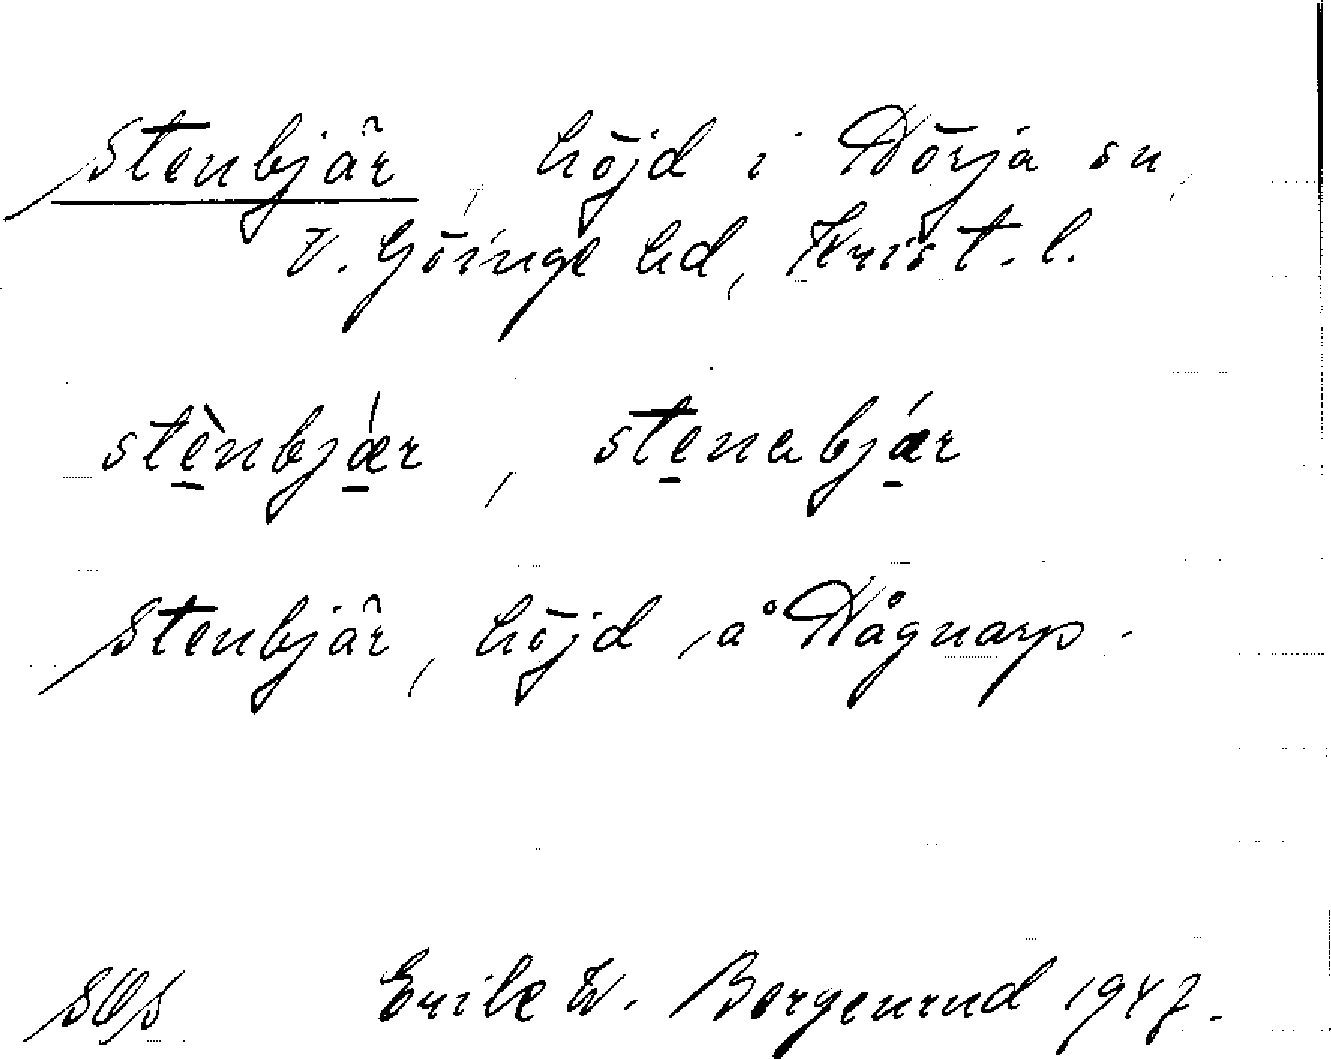 Stenbjär, höjd i Nörja sn,
V. Göinge hd, Krist. l.
stènbjǽr, stenabjǽr
Stenbjär, höjd å Vågnarp.
Bergenrud 1947.